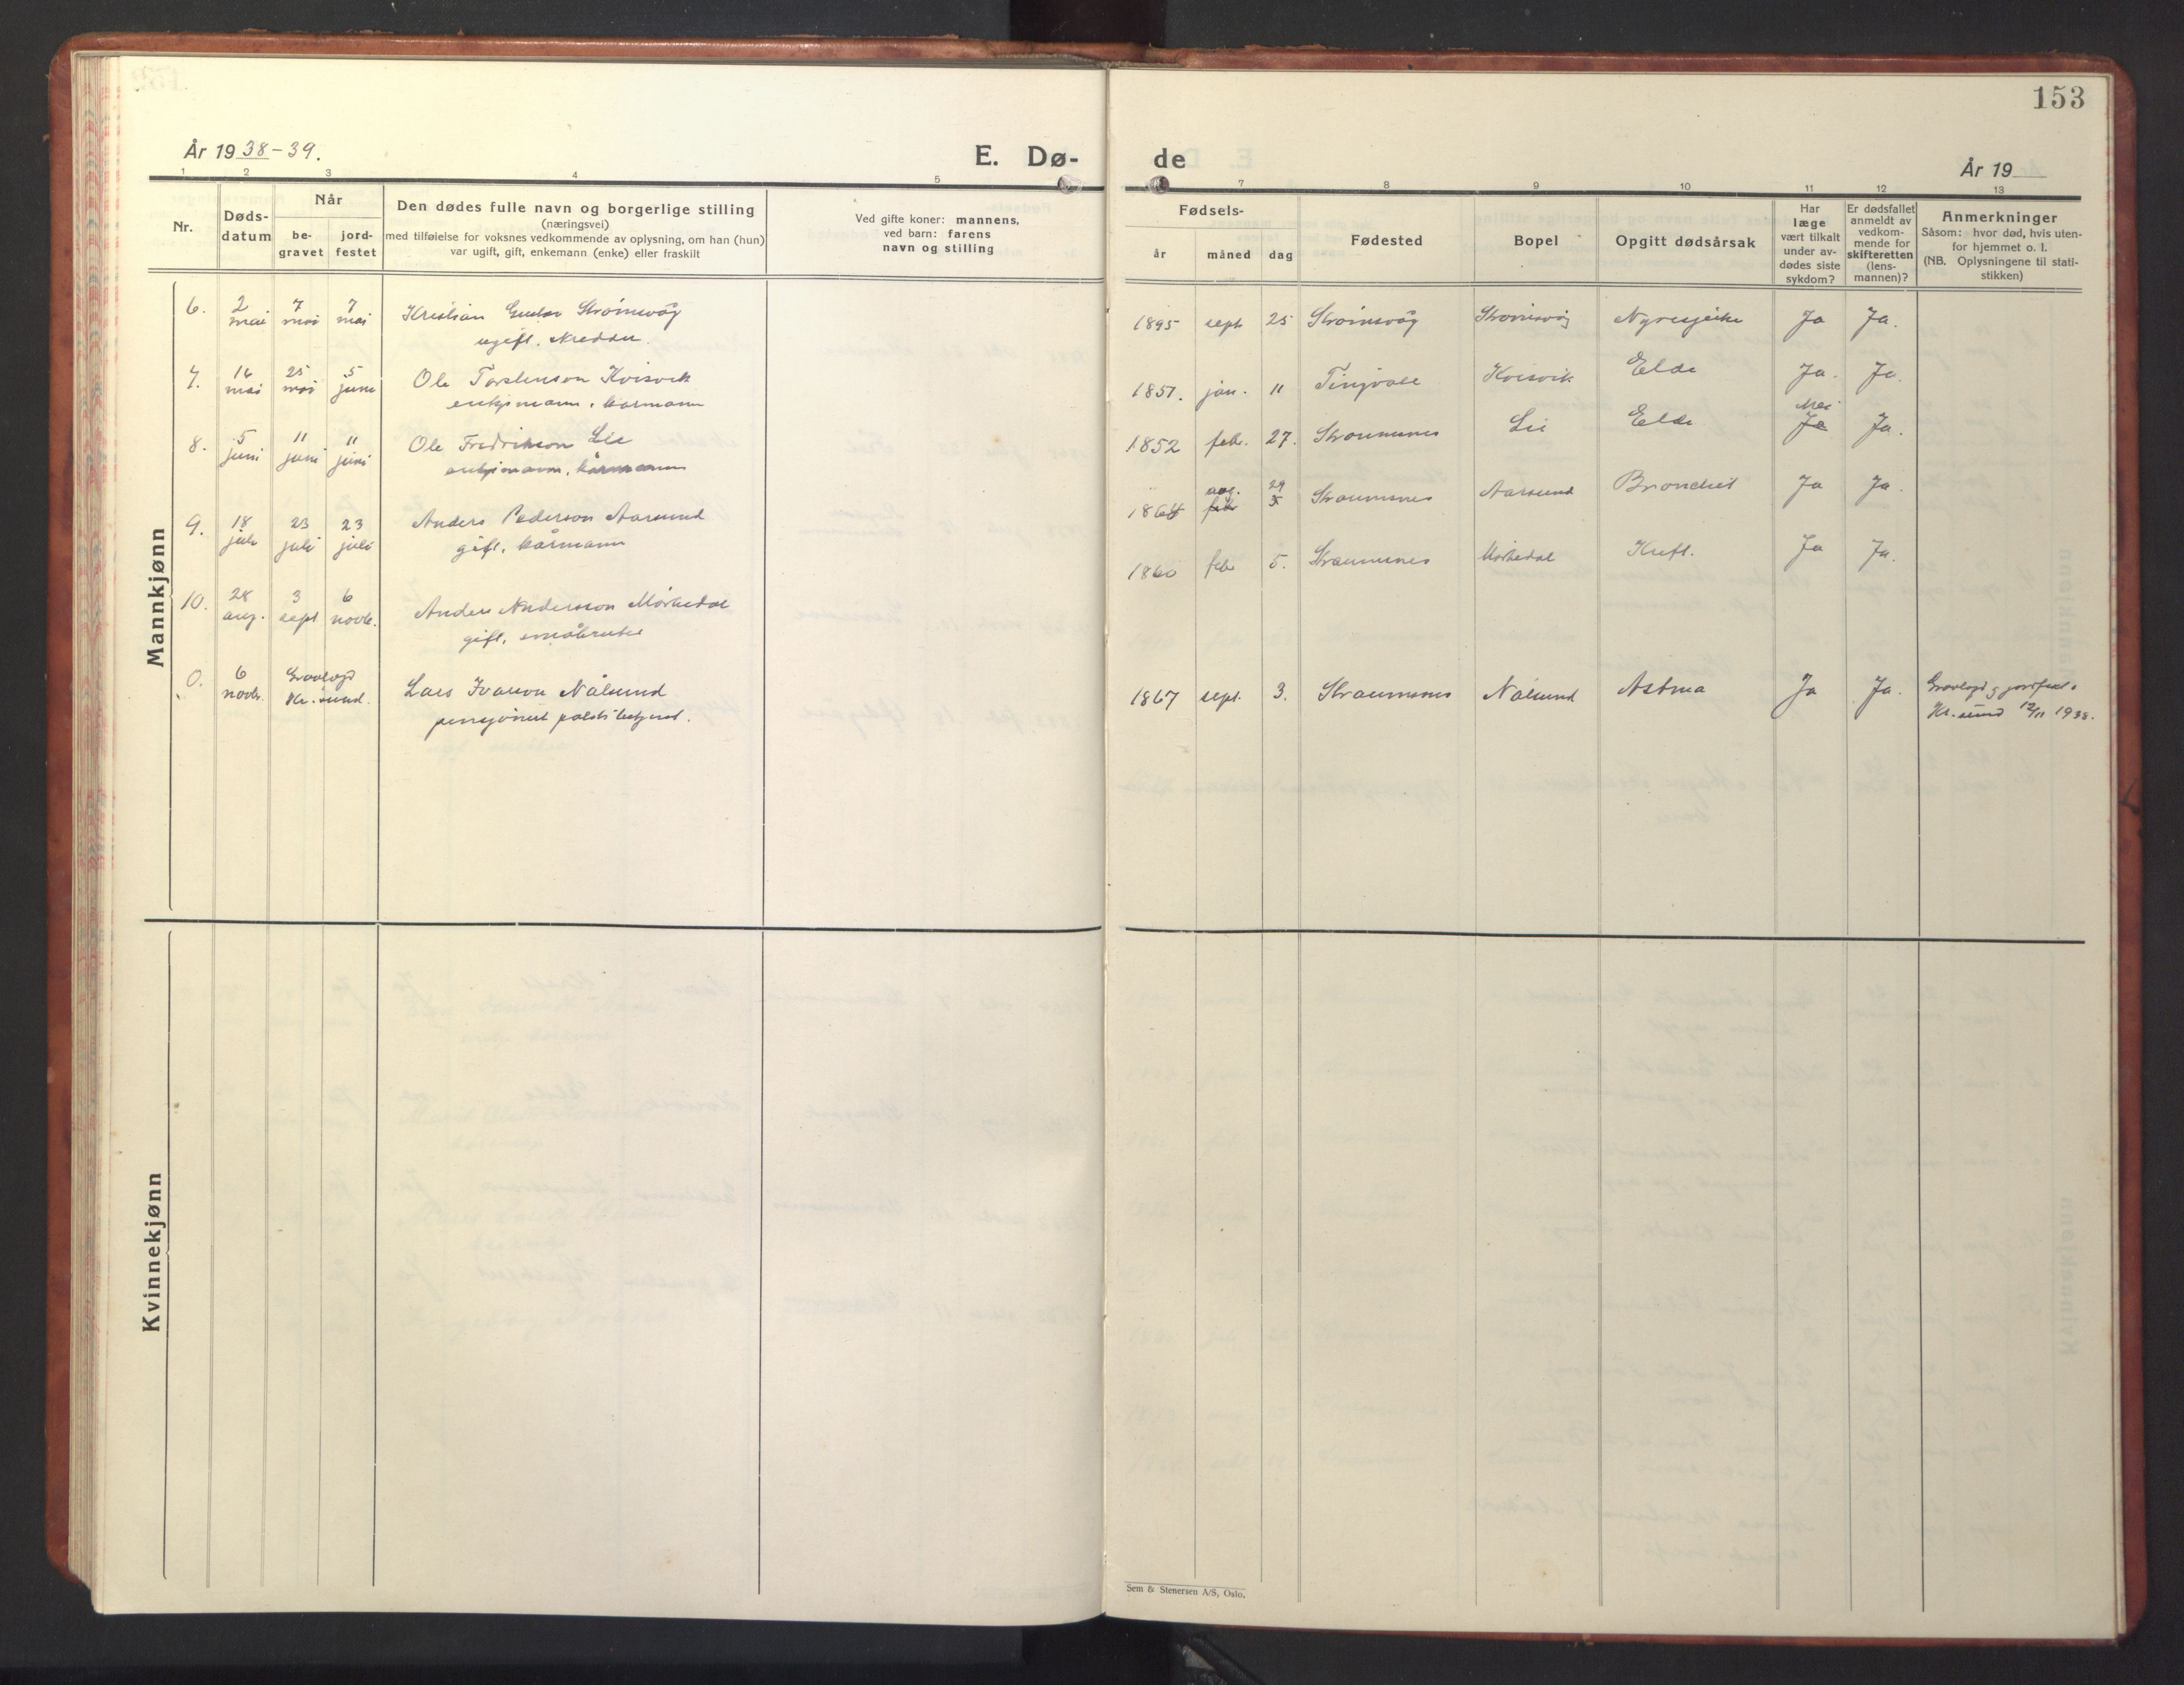 153
År 19 38-39.
E. Dø-
de
År 19
1 2 3 4 5
7 8 9 10 11 12 13
Nr.
Døds-
datum
Når
be-
gravet
jord-
festet
Den dødes fulle navn og borgerlige stilling
(næringsvei)
med tilføielse for voksnes vedkommende av oplysning, om han (hun)
var ugift, gift, enkemann (enke) eller fraskilt
Ved gifte koner: mannens,
ved barn: farens
navn og stilling
Fødsels-
år
måned
dag
Fødested
Bopel
Opgitt dødsårsak
Har
læge
vært tilkalt
under av-
dødes siste
sykdom?
Er dødsfallet
anmeldt av
vedkom-
mende for
skifteretten
(lens-
mannen)?
Anmerkninger
Såsom: hvor død, hvis uten-
for hjemmet o. l.
(NB. Oplysningene til stati-
stikken)
Mannkjønn
6. 2 mai 7 mai 7 mai Kristian Gustav Strömsvåg
ugift.
1895 sept 25 Strömsvåg Strömsvåg Nyresjuke Ja Ja.
7. 16 mai 25 mai 5 juni Ole Torstenson Kvisvik
enkjemann, kårmann
1857. jan. 11 Tingvoll Kvisvik Elde Ja. Ja.
8. 5 juni 11 juni 11 juni Ole Fredrikson Lie
enkjemann, kårmann
1852 feb. 27. Straumsnes Lie Elde Nei Ja Ja.
9. 18 juli 23 juli 23 juli Anders Pederson Aarsund
gift, kårmann
aug. 29
186 feb 5 Straumsnes Aarsund Bronchit Ja Ja.
10. 28 aug. 3 sept 6 novb. Anders Anderson Mörkedal
gift, småbruker
1860 feb 5. Straumsnes Mörkedal Kreft. Ja Ja.
0. 6 novb. Gravlagd
Kr.sund. Lars Ivarson Nålsund
pensjonert politibetjent.
1867 sept. 3. Straumsnes Nålsund Astma Ja Ja. Gravlagt og jordfest i
Kr.sund 12/11 1938.
Kvinnekjønn
Sem & Stenersen A/S, Oslo.